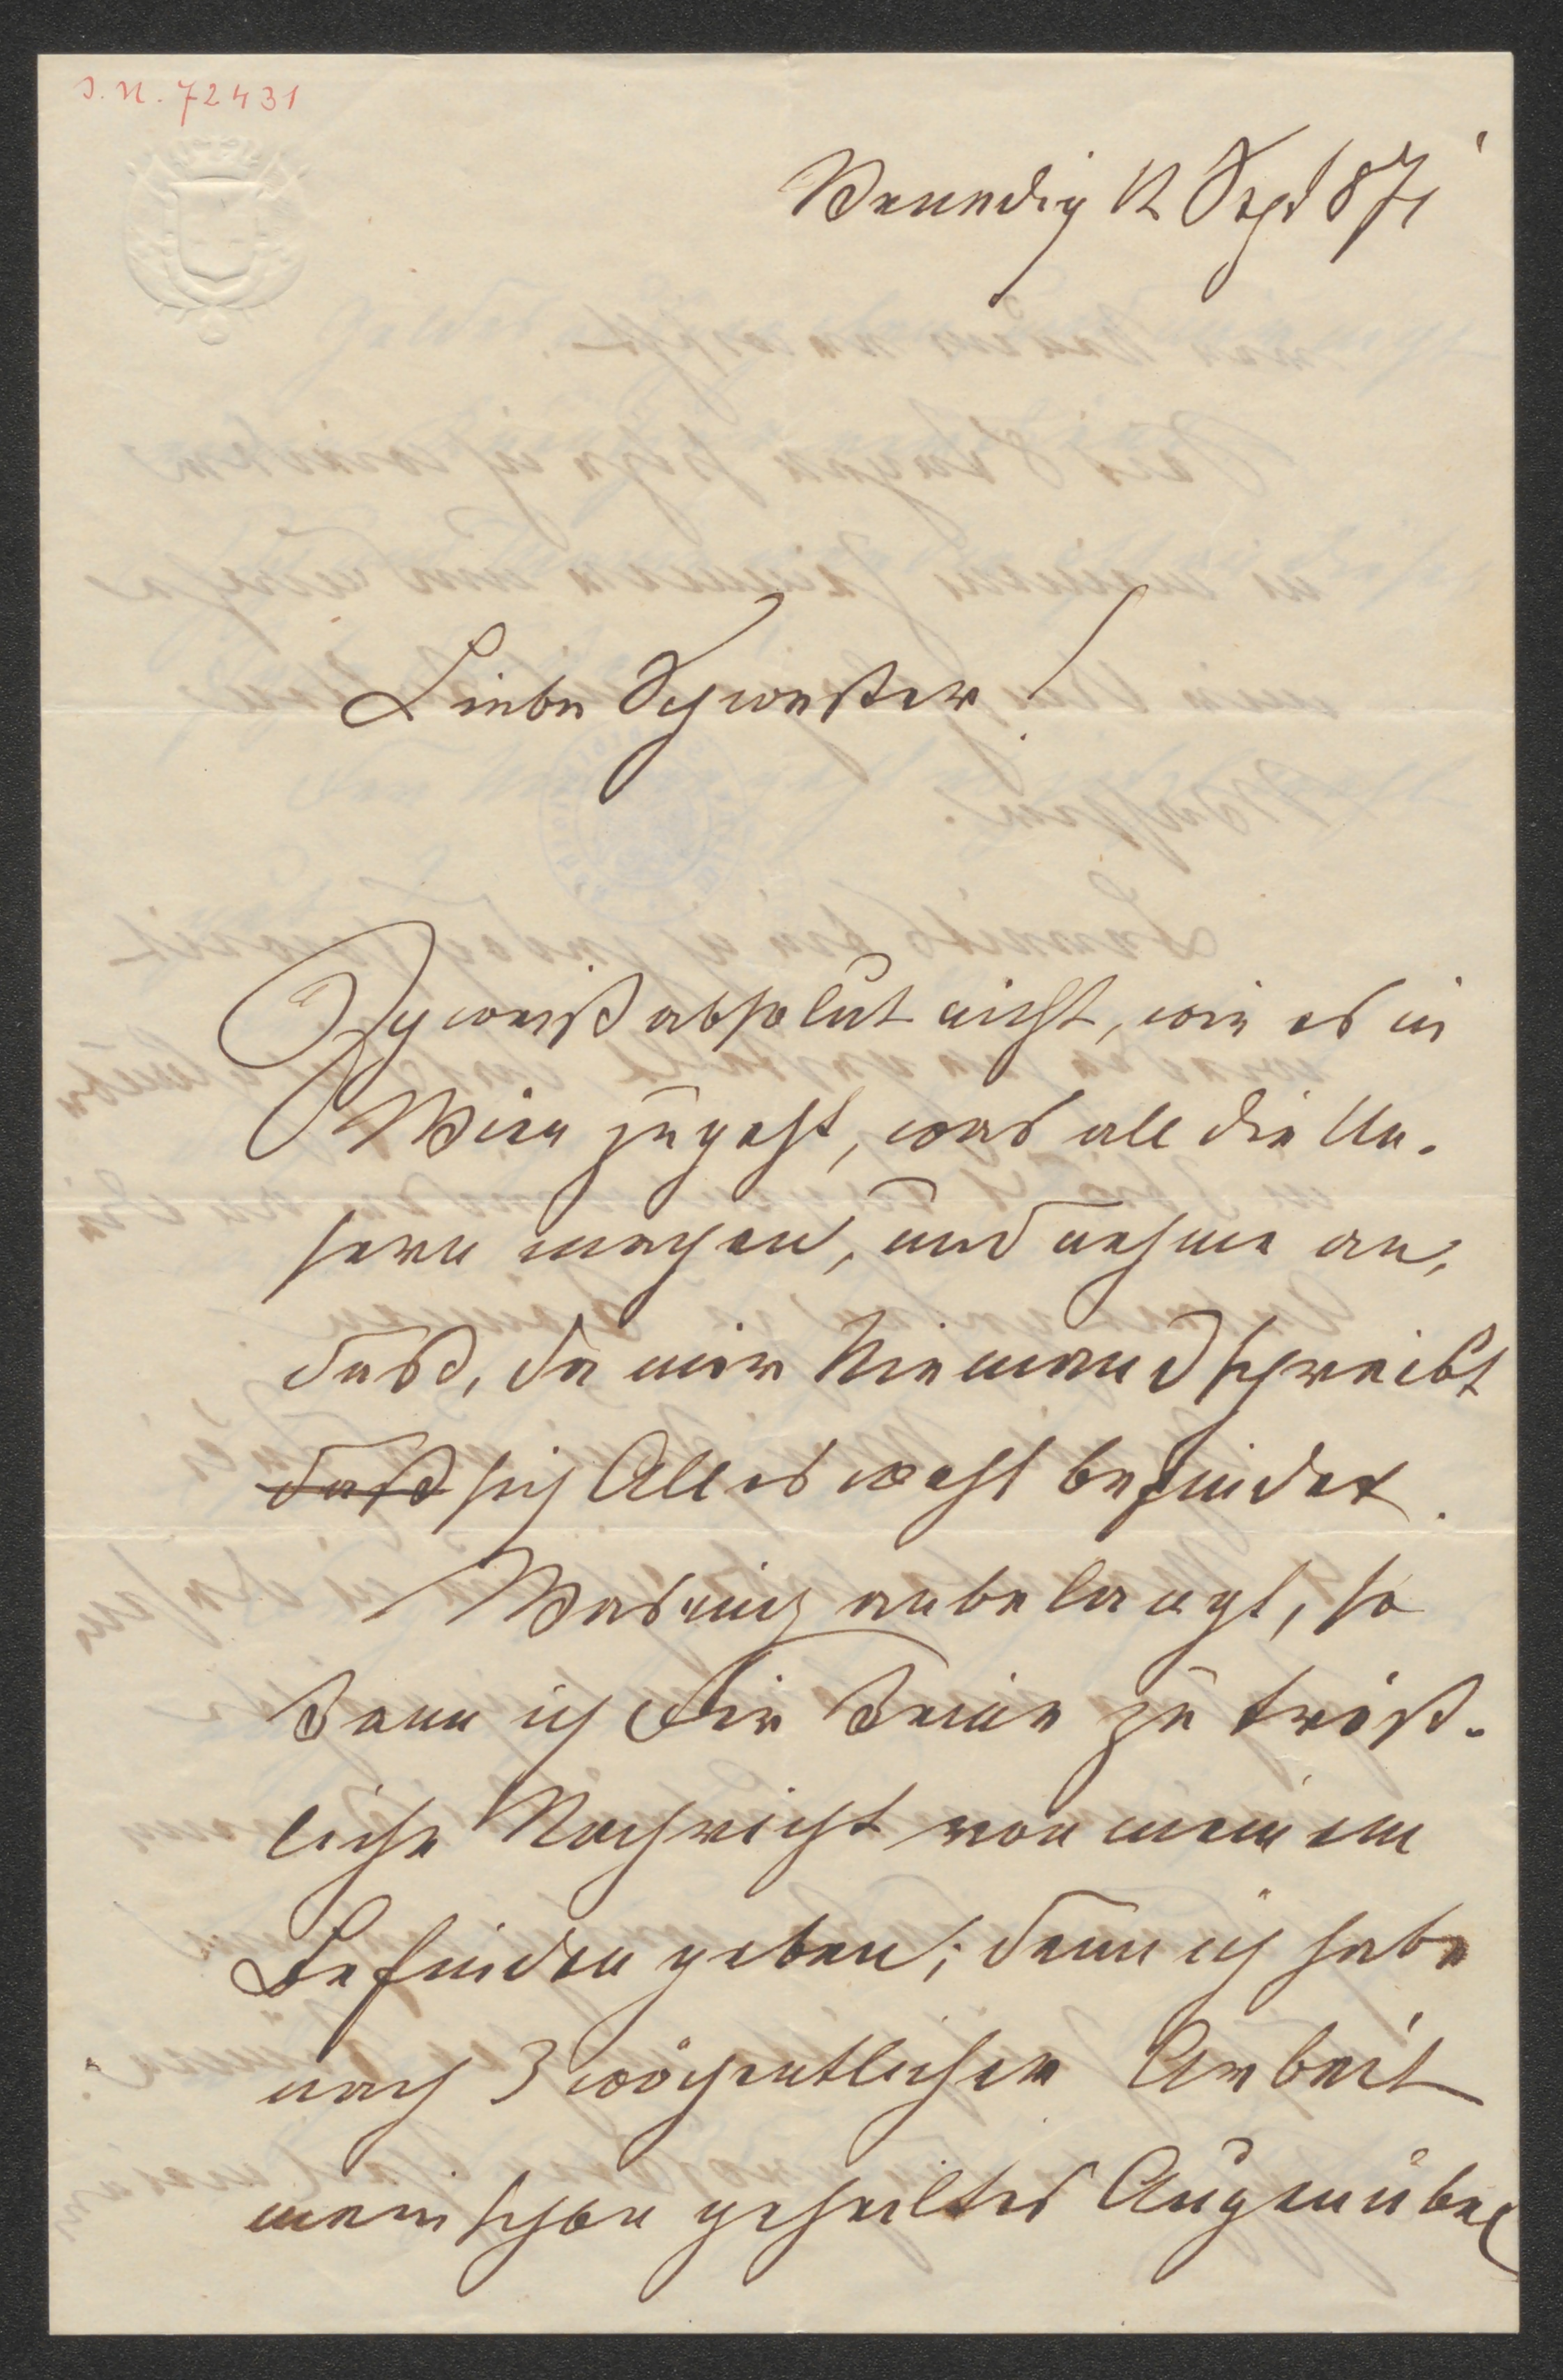 J.N. 72431
Venedig 12 Sept 871
Liebe Schwester!
Ich weiß absolut nicht, wie es in
Wien zugeht, was all die Un-
sern machen, und nehme an,
daß, da mir Niemand schreibt
daß sich Alles wohl befindet.
Was mich anbelangt, so
kann ich Dir keine zu tröst-
liche Nachricht von meinem
Befinden geben; denn ich habe
nach 3 wöchentlicher Arbeit
mein schon geheiltes Augenübel